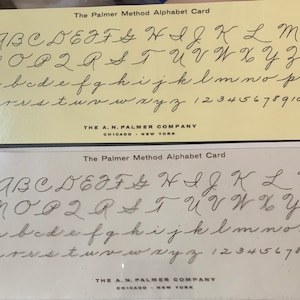 The Palmer Method Alphabet Card
A B C D E F G H I J K L M
O P Q R S T U V W X Y
a b c d e f g h i j k l m n o p
r s t u v w x y z 1 2 3 4 5 6 7 8 9 10
THE A. N. PALMER COMPANY
CHICAGO - NEW YORK
The Palmer Method Alphabet Card
A B C D E F G H I J K L
N O P Q R S T U V W X Y
b c d e f g h i j k l m n o
r s t u v w x y z 1 2 3 4 5 6 7 8
THE A. N. PALMER COMPANY
CHICAGO - NEW YORK